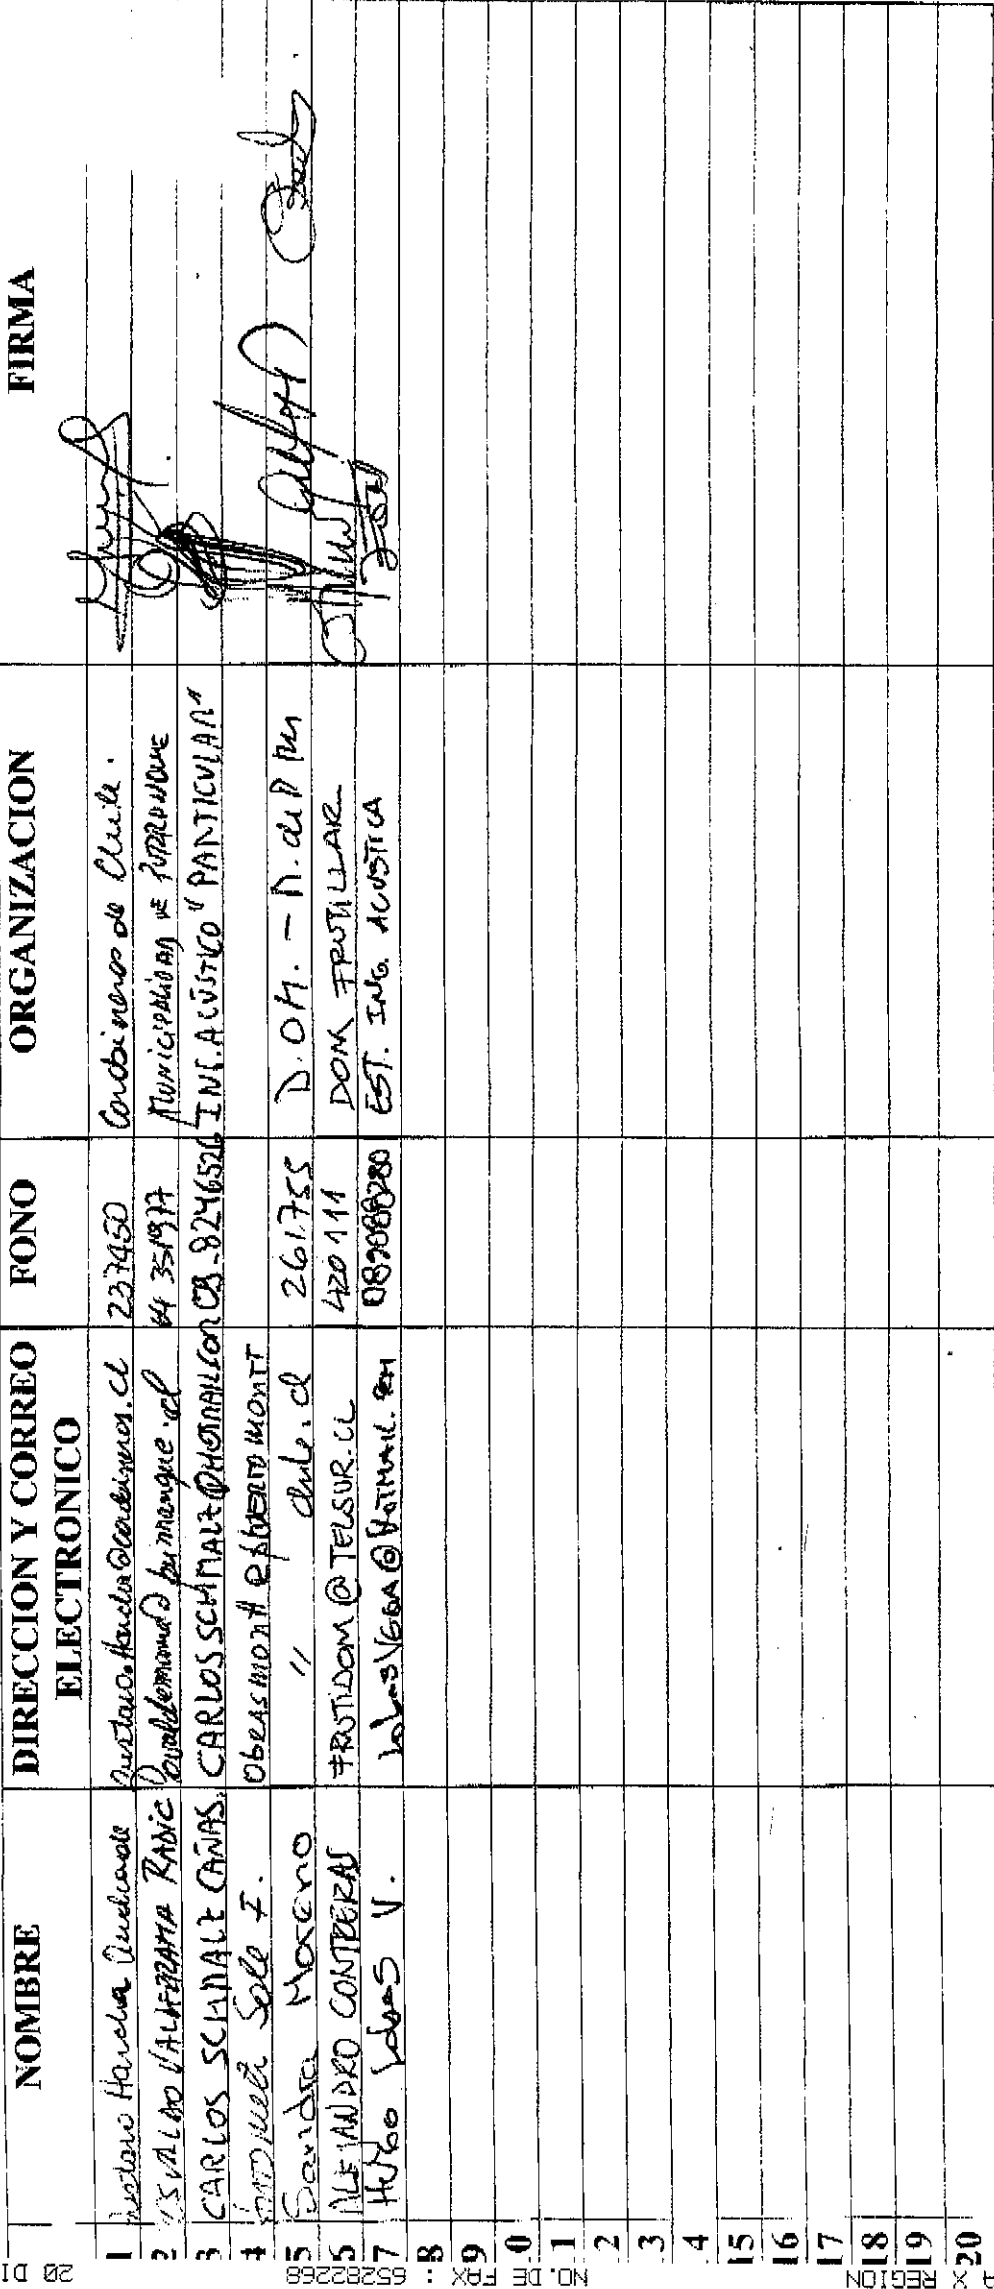 NOMBRE DIRECCION Y CORREO ELECTRONICO FONO ORGANIZACION FIRMA
1 Gustavo Harcha Andrade gustavo.Harcha@carabineros.cl 237450 Carabineros de Chile.
2 OSVALDO VALDERRAMA RADIC 64 351977 MUNICIPALIDAD DE PURRANQUE
3 CARLOS SCHMALZ CAÑAS. CARLOSSCHMALZ@HOTMAIL.COM 09-8246526 ING. ACÚSTICO "PARTICULAR"
4 Sole F. Obrasmontt @puertomontt
5 Sandra Moreno " chile.cl 261755 D.O.M. -
6 ALEJANDRO CONTRERAS FRUTIDOM@TELSUR.CL 420111 DOM FRUTILLAR
7 HUGO Lobos V. LobosVEGA@HOTMAIL.COM EST. ING. ACUSTICA
8
9
0
1
2
3
4
15
16
17
18
19
20
20 DI
NO. DE FAX : 65282268
A X REGION